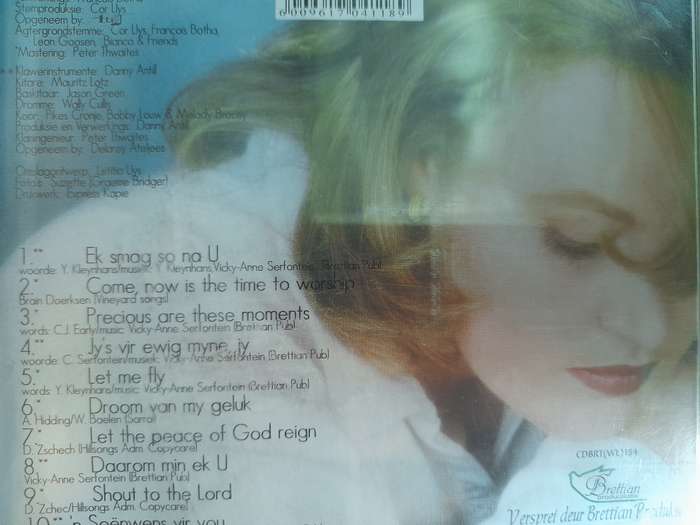 Stemproduksie: Cor Uys
Opgeneem by:
Agtergrondstemme: Cor Uys, Francois Botha,
Leon Goosen, Bianca & Friends
*Mastering: Peter Thwaites
**Klawerinstrumente: Danny Antill
Kitare: Mauritz Lotz
Baskitaar: Jason Green
Dromme: Wally Cullis
Koor: Fikes Cronje, Bobby Louw & Melody Brocky
Produksie en Verwerkings: Danny Antill
Klankingenieur: Peter Thwaites
Opgeneem by: Delaray Ateljees
Omslagontwerp: Letitia Uys
Foto's: Suzette (Graeme Bridger)
Drukwerk: Express Kopie
6009617041189
1.** Ek smag so na U
woorde: Y. Kleynhans/musiek: Y. Kleynhans,Vicky-Anne Serfontein (Brettian Pub)
2.* Come, now is the time to worship
Brain Doerksen (Vineyard songs)
3.* Precious are these moments
words: C.J. Early/music: Vicky-Anne Serfontein (Brettian Pub)
4.** Jy's vir ewig myne, jy
woorde: C. Serfontein/musiek: Vicky-Anne Serfontein (Brettian Pub)
5.* Let me fly
words: Y. Kleynhans/music: Vicky-Anne Serfontein (Brettian Pub)
6.* Droom van my geluk
A. Hidding/W. Baelen (Sarral)
7.* Let the peace of God reign
D. Zschech (Hillsongs Adm. Copycare)
8.** Daarom min ek U
Vicky-Anne Serfontein (Brettian Pub)
9.* Shout to the Lord
D. Zchec/Hillsongs Adm. Copycare)
10.** 'n Seënwens vir you
CDBRT(WL)154
Brettian
PRODUCTIONS
Versprei deur Brettian Produksies